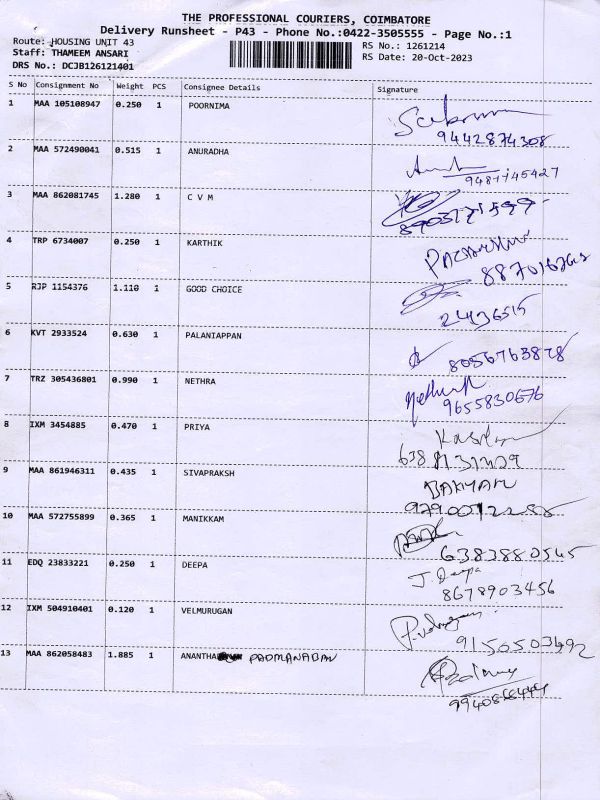 THE PROFESSIONAL COURIERS, COIMBATORE
Delivery Runsheet - P43 - Phone No.:0422-3505555 - Page No.:1
Route: HOUSING UNIT 43
Staff: THAMEEM ANSARI
DRS No.: DCJB126121401
RS No.: 1261214
RS Date: 20-Oct-2023
S No Consignment No Weight PCS Consignee Details Signature
1 MAA 105108947 0.250 1 POORNIMA
9442874308
2 MAA 572490041 0.515 1 ANURADHA
3 MAA 862081745 1.280 1 C V M
4 TRP 6734007 0.250 1 KARTHIK
5 RJP 1154376 1.110 1 GOOD CHOICE
24436515
6 KVT 2933524 0.630 1 PALANIAPPAN
8056763878
7 TRZ 305436801 0.990 1 NETHRA
9655830676
8 IXM 3454885 0.470 1 PRIYA
9 MAA 861946311 0.435 1 SIVAPRAKSH
10 MAA 572755899 0.365 1 MANIKKAM
6383880545
11 EDQ 23833221 0.250 1 DEEPA
J. Deepa
8678903456
12 IXM 504910401 0.120 1 VELMURUGAN
9150503492
13 MAA 862058483 1.885 1 ANANTHA PADMANABAN